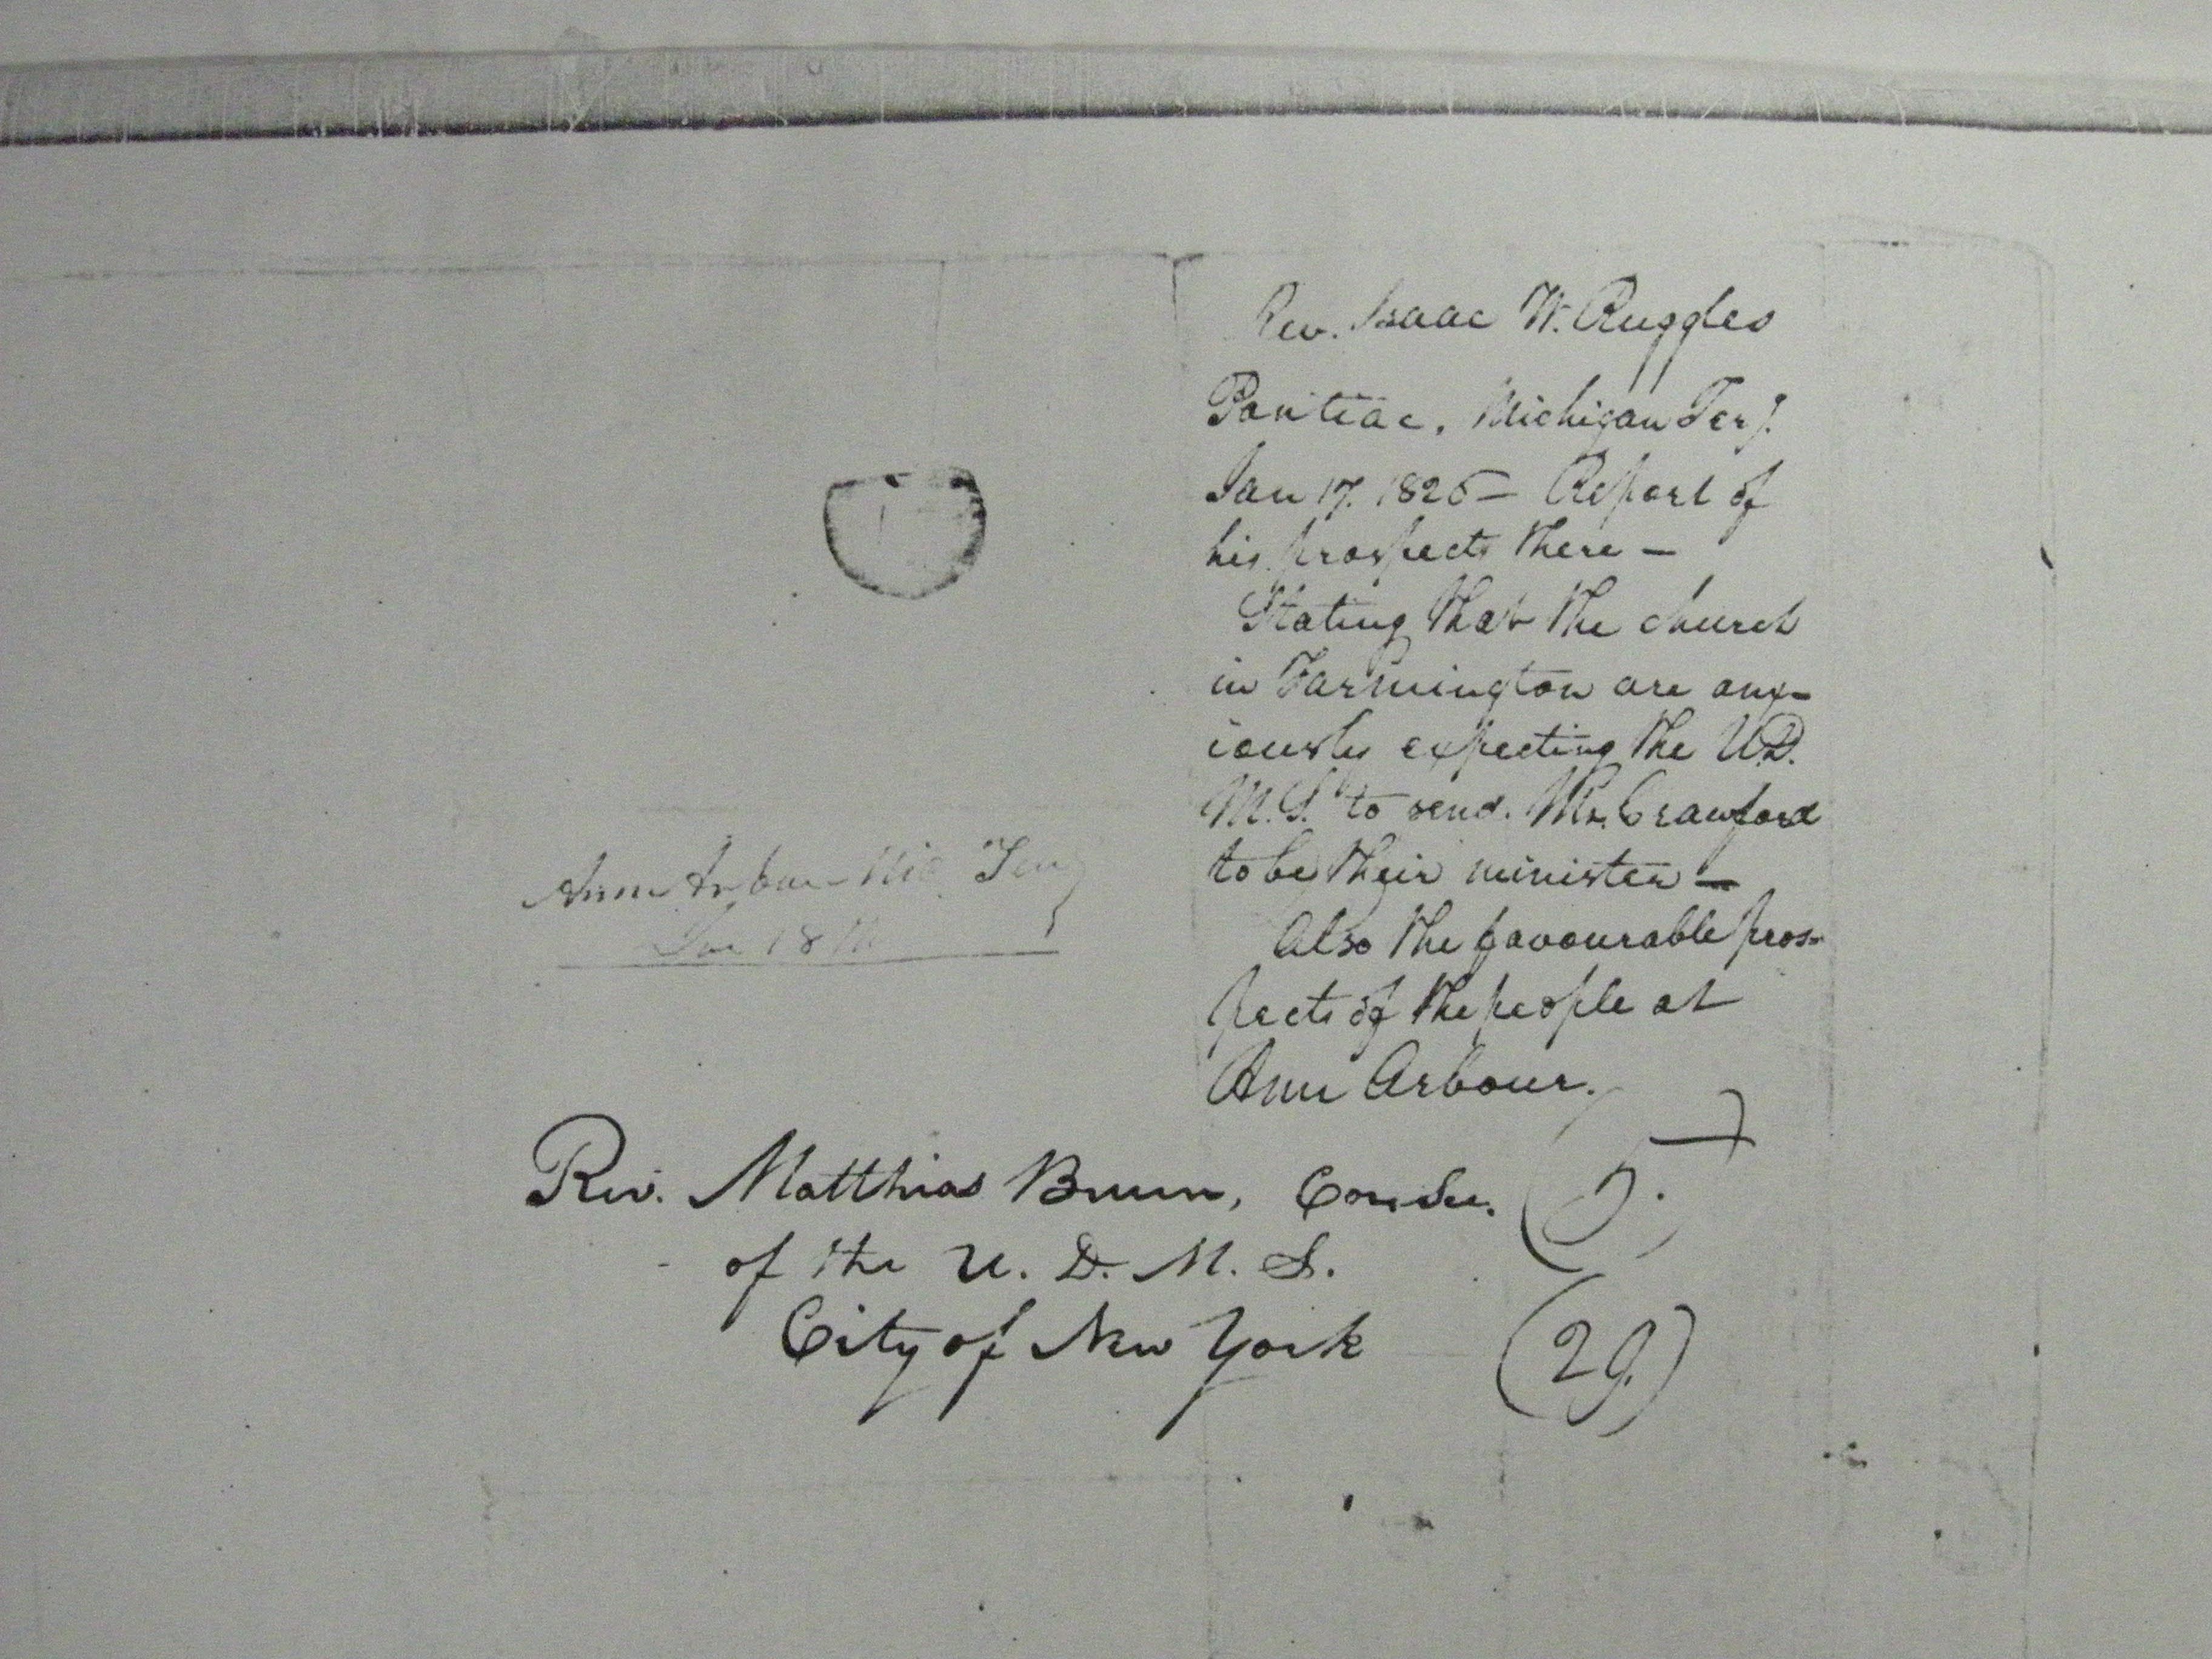 Rev. Isaac W. Ruggles
Pontiac, Michigan Ter.
Jan 17. 1826 — Report of
his prospects there —
Stating that the church
in Farmington are anx-
iously expecting the U.D.
M.S. to send. Mr. Crawford
to be their minister —
Also the favourable pros-
pects of the people at
Ann Arbour.
Ann Arbour Mic Ter
18
Rev. Matthias Bruen,
of the U. D. M. S.
City of New York
(29.)